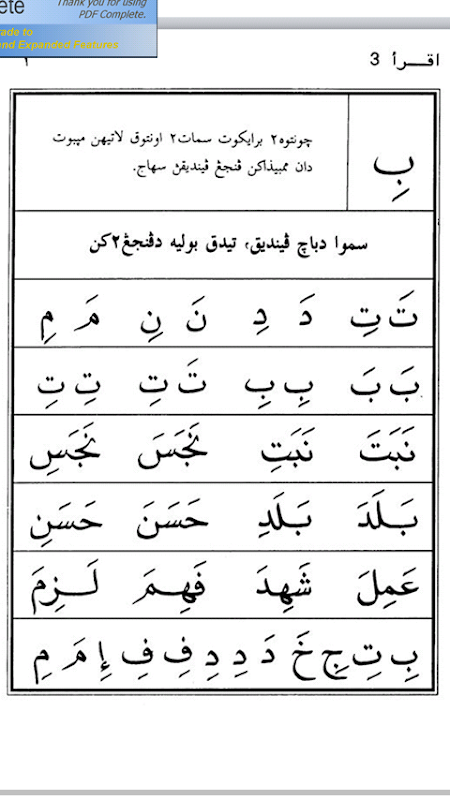 ete
Thank you for using
PDF Complete.
rade to
and Expanded Features
اقـــرأ 3 ١
بِ
چونتوه٢ برايكوت سمات٢ اونتوق لاتيهن مڽبوت
دان ممبيذاكن ڤنجڠ ڤينديقڽ سهاج.
سموا دباچ ڤينديق، تيدق بوليه دڤنجڠ٢كن
تَ تِ دَ دِ نَ نِ مَ مِ
بَ بَ بِ بِ تَ تِ تِ تِ
نَبَتَ نَبَتِ نَجَسَ نَجَسِ
بَـلَدَ بَـلَدِ حَسَنَ حَسَنِ
عَمِلَ شَهِدَ فَهِـمَ لَـزِمَ
بِ تِ جِ خَ دَ دِ دِ فِ فِ إِ مَ مِ